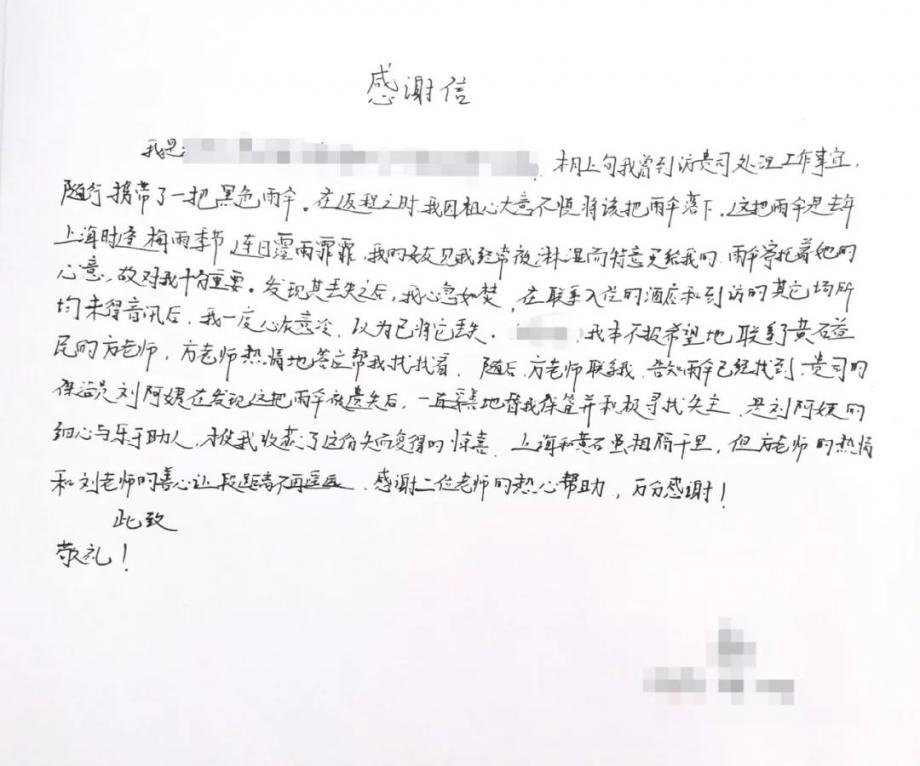 感谢信
我是 本月上旬我曾到访贵司处理工作事宜,
随行携带了一把黑色雨伞。在返程之时,我因粗心大意不慎将该把雨伞落下。这把雨伞是去年
上海时逢梅雨季节,连日霪雨霏霏,我的女友见我经常被淋湿而特意买给我的,雨伞寄托着她的
心意,故对我十分重要。发现其丢失之后,我心急如焚,在联系入住的酒店和到访的其它场所
均未得音讯后,我一度心灰意冷,以为已将它丢失。 我本不报希望地联系了黄石益
民的方老师,方老师热情地答应帮我找找看。随后,方老师联系我,告知雨伞已经找到,贵司的
保洁员刘阿姨在发现这把雨伞被遗失后,一直 地替我保管并积极寻找失主,是刘阿姨的
细心与乐于助人,才使我收获了这份失而复得的惊喜。上海和黄石虽相隔千里,但方老师的热情
和刘老师的善心让这段距离不再遥远。感谢二位老师的热心帮助,万分感谢!
此致
敬礼!